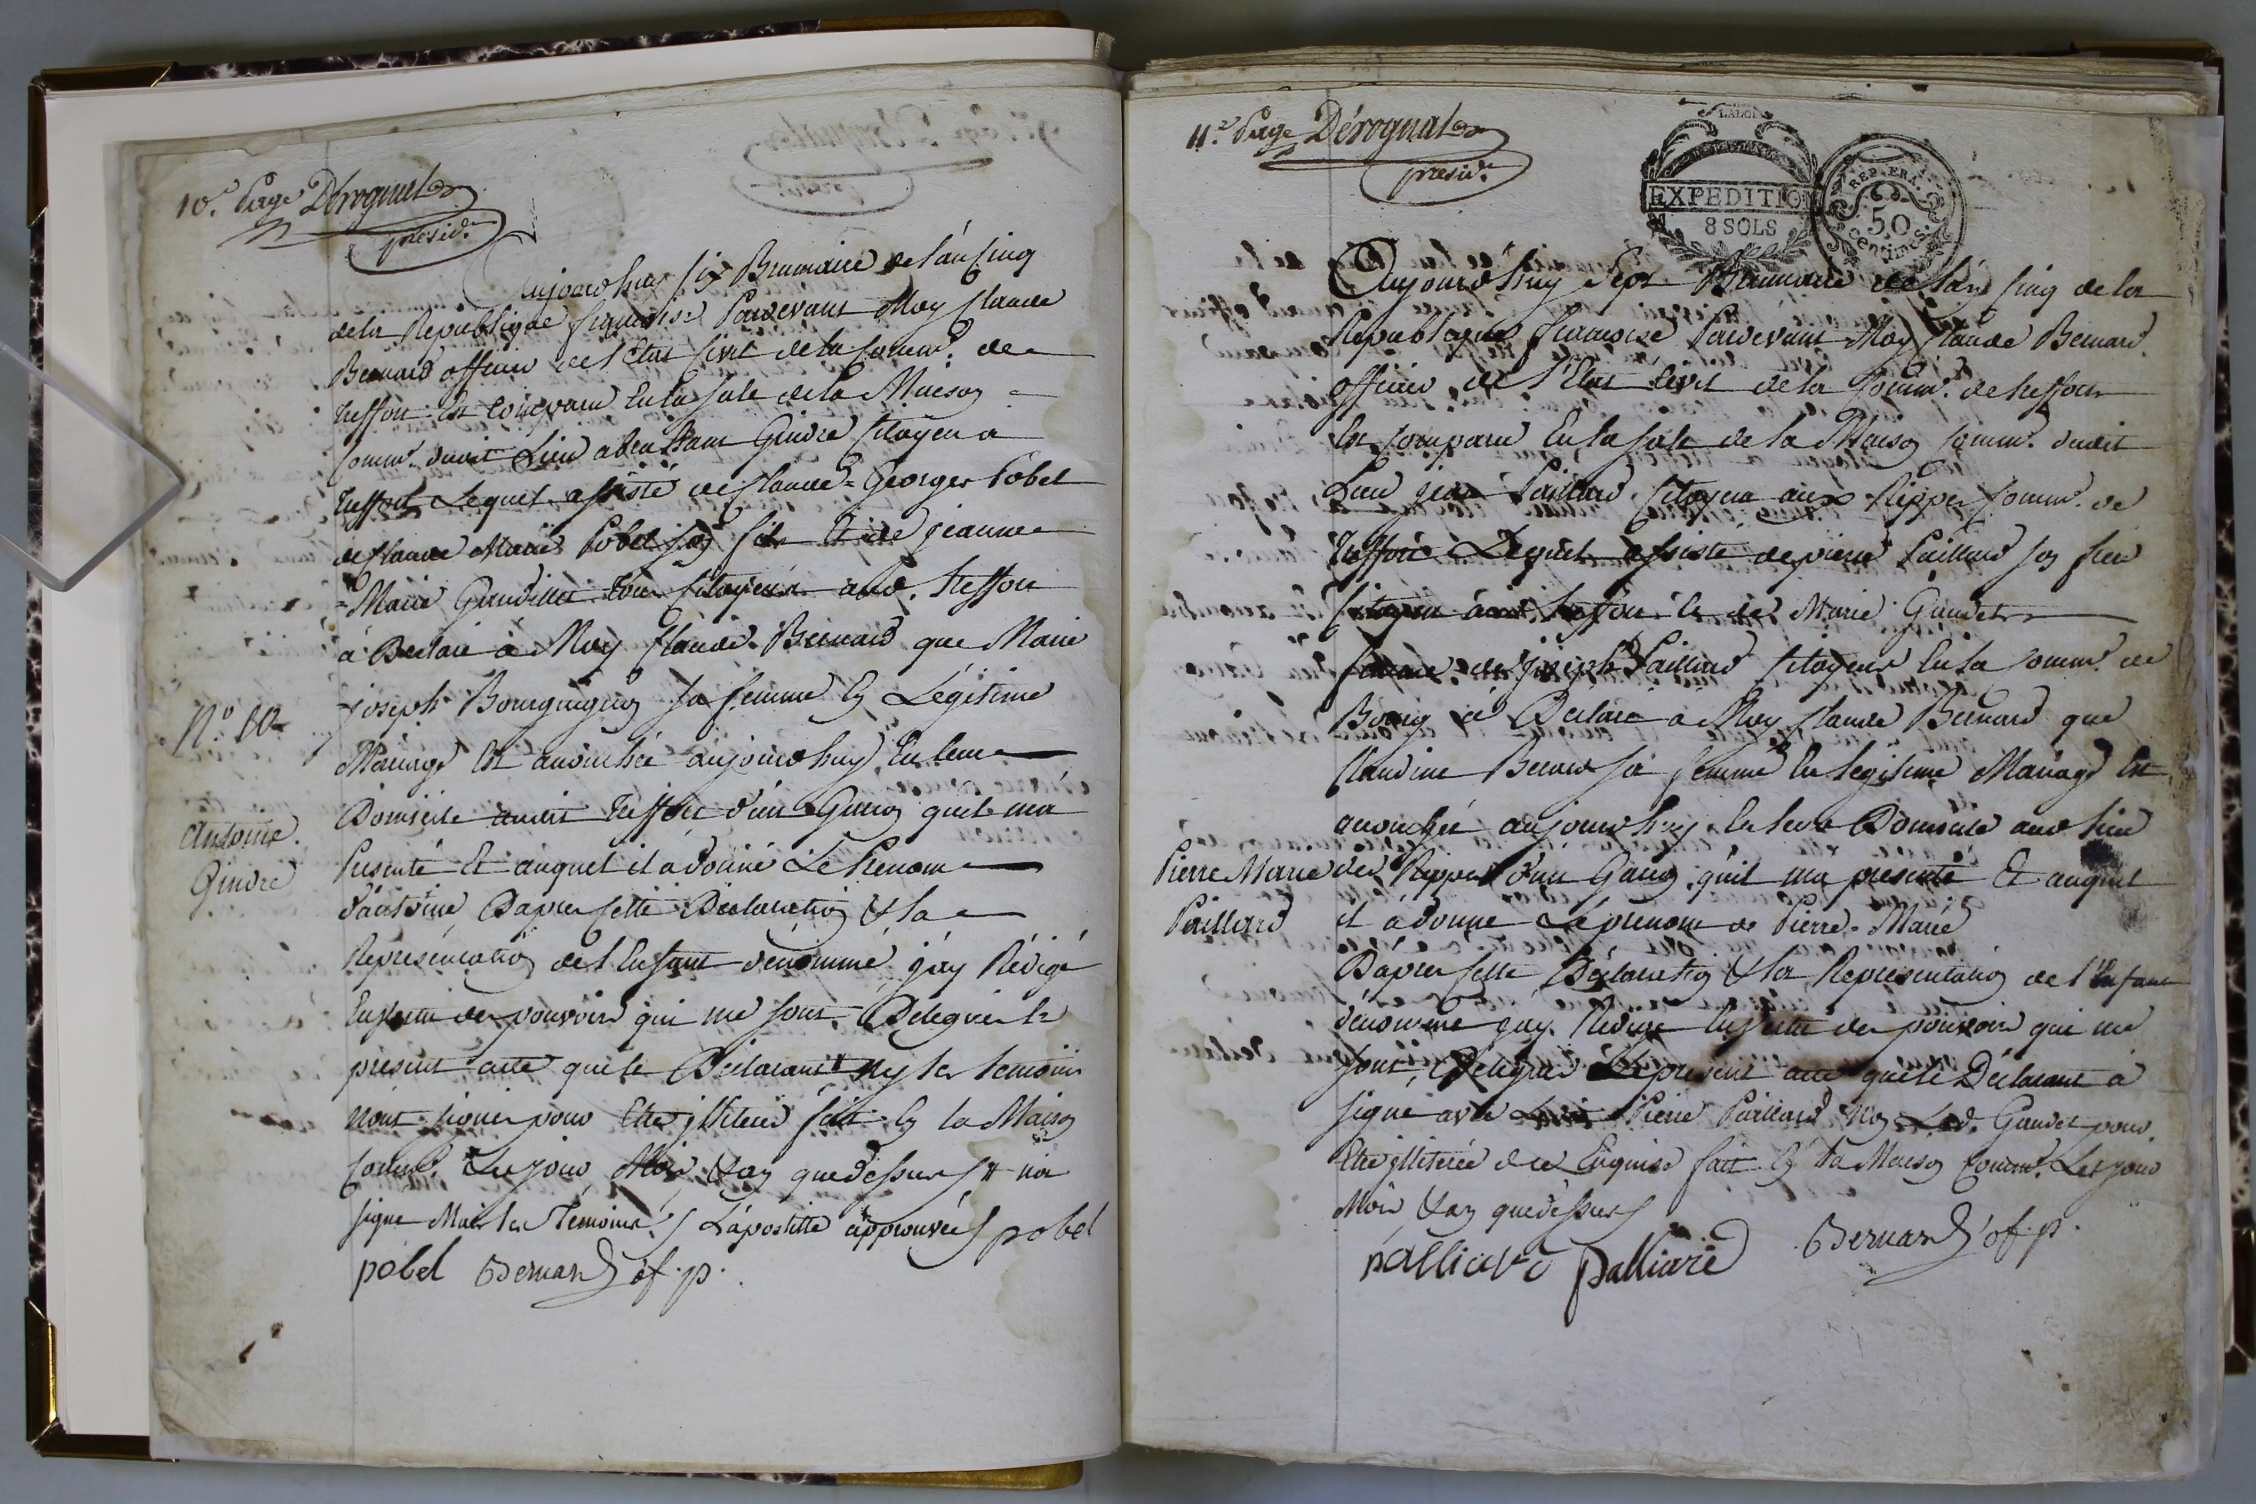 10.e Page Dérognat
presid.t
Aujourdhuy six Brumaire de l'an Cinq
de la Republique francoise Pardevant Moy Claude
Bernard officier de l'Etat Civil de la Comm.e de
Treffort Est comparu En la sale de la Maison
Comm.e dudit Lieu Gindre Citoyen a
Treffort Lequel assisté de Claude=Georges Pobel
de Claude Marie Pobel son fils Et de jeanne
=Marie tous Citoyens aud. Treffort
à Declaré à Moy Claude Bernard que Marie
joseph Bourguignon sa femme En Légitime
N.o 10
Mariage Est accouchée aujourdhuy En leur
Domicile audit Treffort d'un Garcon quil ma
Antoine
Gindre
Présenté Et auquel il à donné Le Prenom
d'antoine D'apres Cette Déclaration & la
Représentation de l'Enfant dénommé j'ay Rédigé
En vertu des pouvoirs qui me sont Délégués le
présent acte que le Déclarant ny les temoins
n'ont signés pour Etre illiteré fait En la Maison
Comm.e Les jour Mois & an que dessus # na
signe Mais les Témoins / L'apostille approuvée / pobel
pobel Bernard of. p.
11.e Page Dérognat
presid.t
LA LOI
EXPEDITION
8 SOLS
REP. FRA.
50
Centimes.
Aujourd'huy Sept Brumaire de l'an Cinq de la
Republique francoise Pardevant Moy Claude Bernard
officier de l'Etat Civil de la Comm.e de Treffort
Est Comparu En la sale de la Maison Comm.e dudit
Lieu Paillard Citoyen aux Rippes Comm.e de
Treffort Lequel assisté de pierre Paillard son frere
Citoyen audit Treffort & de Marie Gaudet
femme de joseph Paillard Citoyens En la Comm.e de
Bourg à Declaré a Moy Claude Bernard que
Claudine sa femme En legitime Mariage Est
accouchée aujourdhuy En leur Domicile aud lieu
Pierre Marie
Paillard
des Rippes d'un Garcon quil ma présenté Et auquel
il à donné Le prenom de Pierre=Marie
D'apres Cette Déclaration & la Representation de l'Enfant
dénommé j'ay Rédigé En vertu des pouvoirs qui me
sont Délégués Le present acte que le Déclarant à
signé avec Pierre Paillard Non Lad. Gaudet pour
Etre illiterée de ce Enquise fait En la Maison Comm.e Les jour
Mois & an que dessus
palliard palliard Bernard of. p.